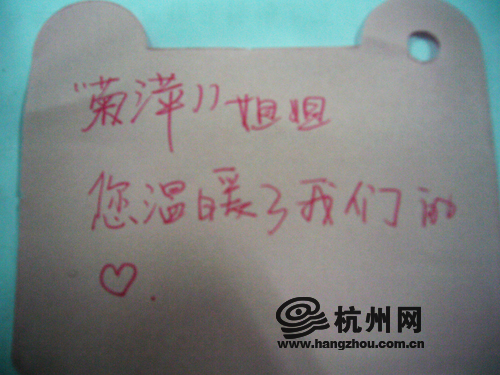 “菊萍”姐姐
您温暖了我们的
♡.
杭州网
www.hangzhou.com.cn